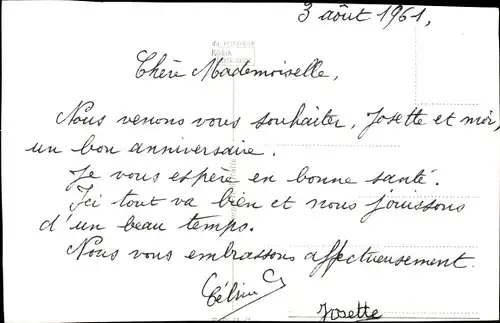 3 août 1961,
Kodak
Chère Mademoiselle,
Nous venons vous souhaiter, Josette et moi,
un bon anniversaire.
Je vous espère en bonne santé.
Ici tout va bien et nous jouissons
d'un beau temps.
Nous vous embrassons affectueusement.
Josette